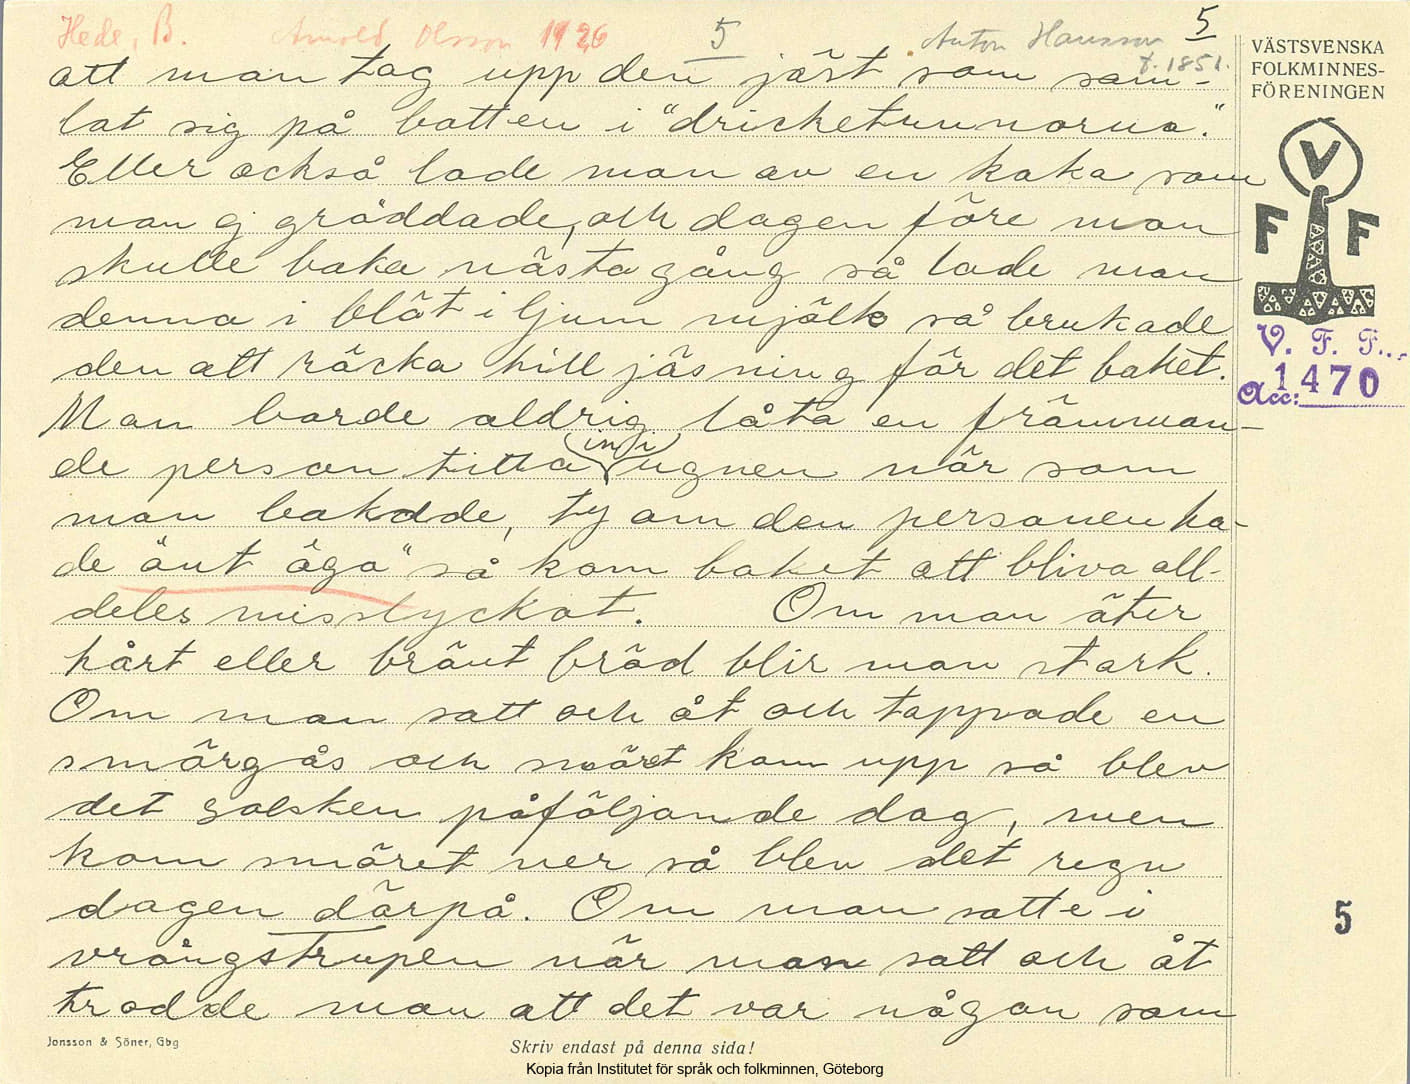 Hede, B. Arnold Olsson 1926 5 Anton Hansson 5
f. 1851.
att man tag upp den jäst som sam-
lat sig på botten i "dricketunnorna."
Eller också lade man av en kaka som
man ej gräddade, och dagen före man
skulle baka nästa gång så lade man
denna i blöt i ljum mjölk så brukade
den att räcka till jäsning för det baket.
Man borde aldrig låta en främman-
de person titta (in i) ugnen när som
man bakade, ty om den personen ha-
de "önt öga" så kom baket att bliva all-
deles misslyckat. Om man äter
hårt eller bränt bröd blir man stark.
Om man satt och åt och tappade en
smörgås och smöret kom upp så blev
det solsken påföljande dag, men
kom smöret ner så blev det regn
dagen därpå. Om man satte i
vrångstrupen när man satt och åt
trodde man att det var någon som
VÄSTSVENSKA
FOLKMINNES-
FÖRENINGEN
V
F F
V. F. F.
Acc: 1470
5
Jonsson & Söner, Gbg
Skriv endast på denna sida!
Kopia från Institutet för språk och folkminnen, Göteborg